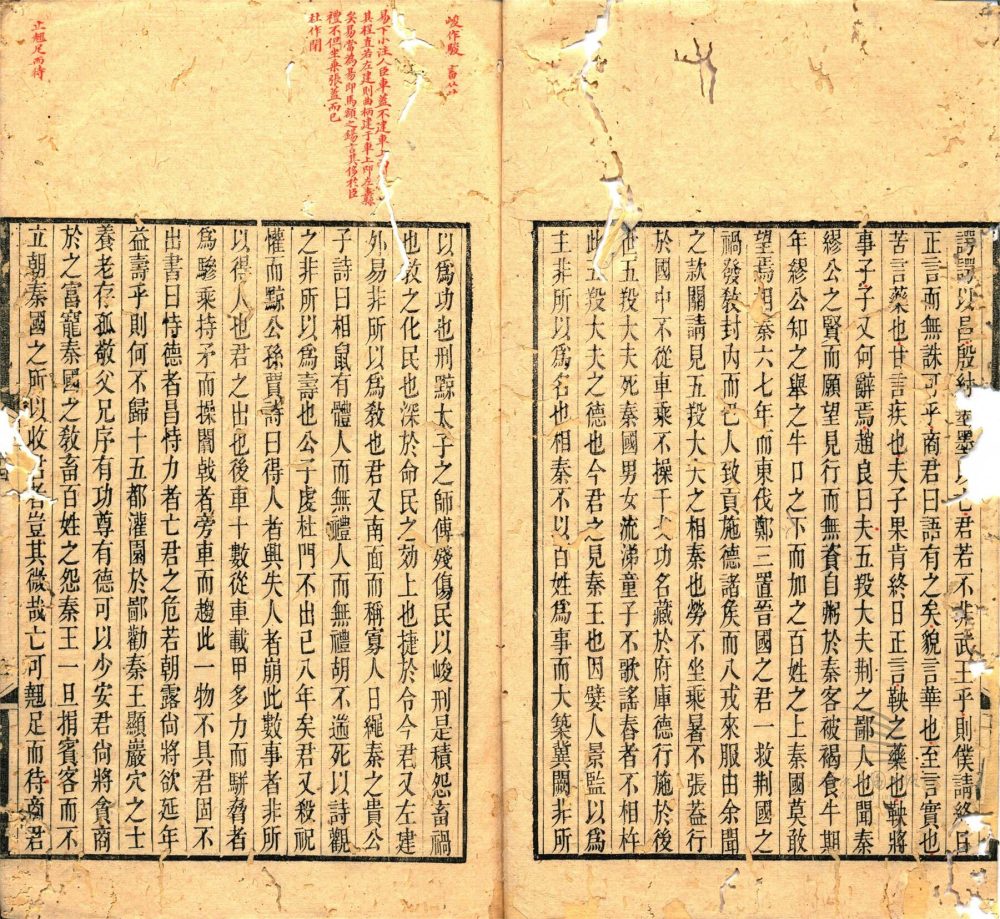 諤諤以昌殷紂墨墨以亡君若不非武王乎則僕請終日
正言而無誅可乎商君曰語有之矣貌言華也至言實也
苦言藥也甘言疾也夫子果肯終日正言鞅之藥也鞅將
事子子又何辭焉趙良曰夫五羖大夫荆之鄙人也聞秦
繆公之賢而願望見行而無資自粥於秦客被褐食牛期
年繆公知之舉之牛口之下而加之百姓之上秦國莫敢
望焉相秦六七年而東伐鄭三置晉國之君一救荆國之
禍發敎封内而巴人致貢施德諸矦而八戎來服由余聞
之款關請見五羖大夫之相秦也勞不坐乘暑不張蓋行
於國中不從車乘不操干戈功名藏於府庫德行施於後
世五羖大夫死秦國男女流涕童子不歌謠舂者不相杵
此五羖大夫之德也今君之見秦王也因嬖人景監以爲
主非所以爲名也相秦不以百姓爲事而大築冀闕非所
峻作駿 畜蓄
易下小注人臣車蓋不建車上
其程直若左建則曲柄建于車上即左纛縣
矣易當為昜即馬額之鍚言其侈於臣
禮不但坐乘張蓋而已
杜作閉
止翹足而待
以爲功也刑黥太子之師傅殘傷民以峻刑是積怨畜禍
也敎之化民也深於命民之効上也捷於令今君又左建
外易非所以爲敎也君又南面而稱寡人日繩秦之貴公
子詩曰相鼠有體人而無禮人而無禮胡不遄死以詩觀
之非所以爲壽也公子虔杜門不出已八年矣君又殺祝
懽而黥公孫賈詩曰得人者興失人者崩此數事者非所
以得人也君之出也後車十數從車載甲多力而駢脅者
爲驂乘持矛而操闟戟者旁車而趨此一物不具君固不
出書曰恃德者昌恃力者亡君之危若朝露尚將欲延年
益壽乎則何不歸十五都灌園於鄙勸秦王顯巖穴之士
養老存孤敬父兄序有功尊有德可以少安君尚將貪商
於之富寵秦國之敎畜百姓之怨秦王一旦捐賓客而不
立朝秦國之所以收君者豈其微哉亡可翹足而待商君